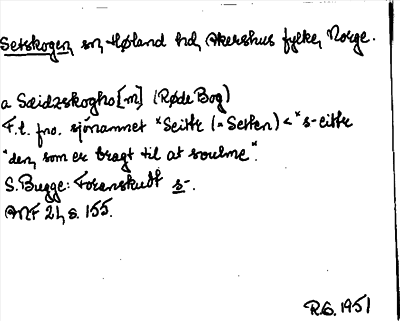 Setskogen, sn, Høland hd, Akershus fylke, Norge.
a Sæidzskogho[m] (Røde Bog)
F.t. fno. sjönamnet *Seitr (= Setten) < *s-eitr
"den, som er bragt til at svulme".
S. Bugge: Foranskudt s-.
ANF 21, s. 155.
R.G. 1951